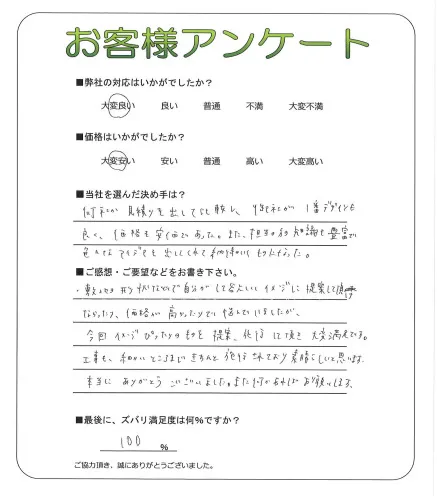 お客様アンケート
■弊社の対応はいかがでしたか?
大変良い 良い 普通 不満 大変不満
■価格はいかがでしたか?
大変安い 安い 普通 高い 大変高い
■当社を選んだ決め手は?
何社か見積りを出してもらい比較し、 が1番デザインも
良く、価格も安価であった。また、担当の 知識も豊富で
色々なアイデアを出してくれて
■ご感想・ご要望などをお書き下さい。
・敷地の形状などで自分がしてほしいイメージに提案して頂け
なかったり、価格が高かったりで悩んでいましたが、
今回イメージぴったりのものを提案、施行して頂き大変満足です。
工事も、細かいところまできちんと施行されており素晴らしいと思います。
本当にありがとうございました。また何かあればお願いします。
■最後に、ズバリ満足度は何%ですか?
100 %
ご協力頂き、誠にありがとうございました。